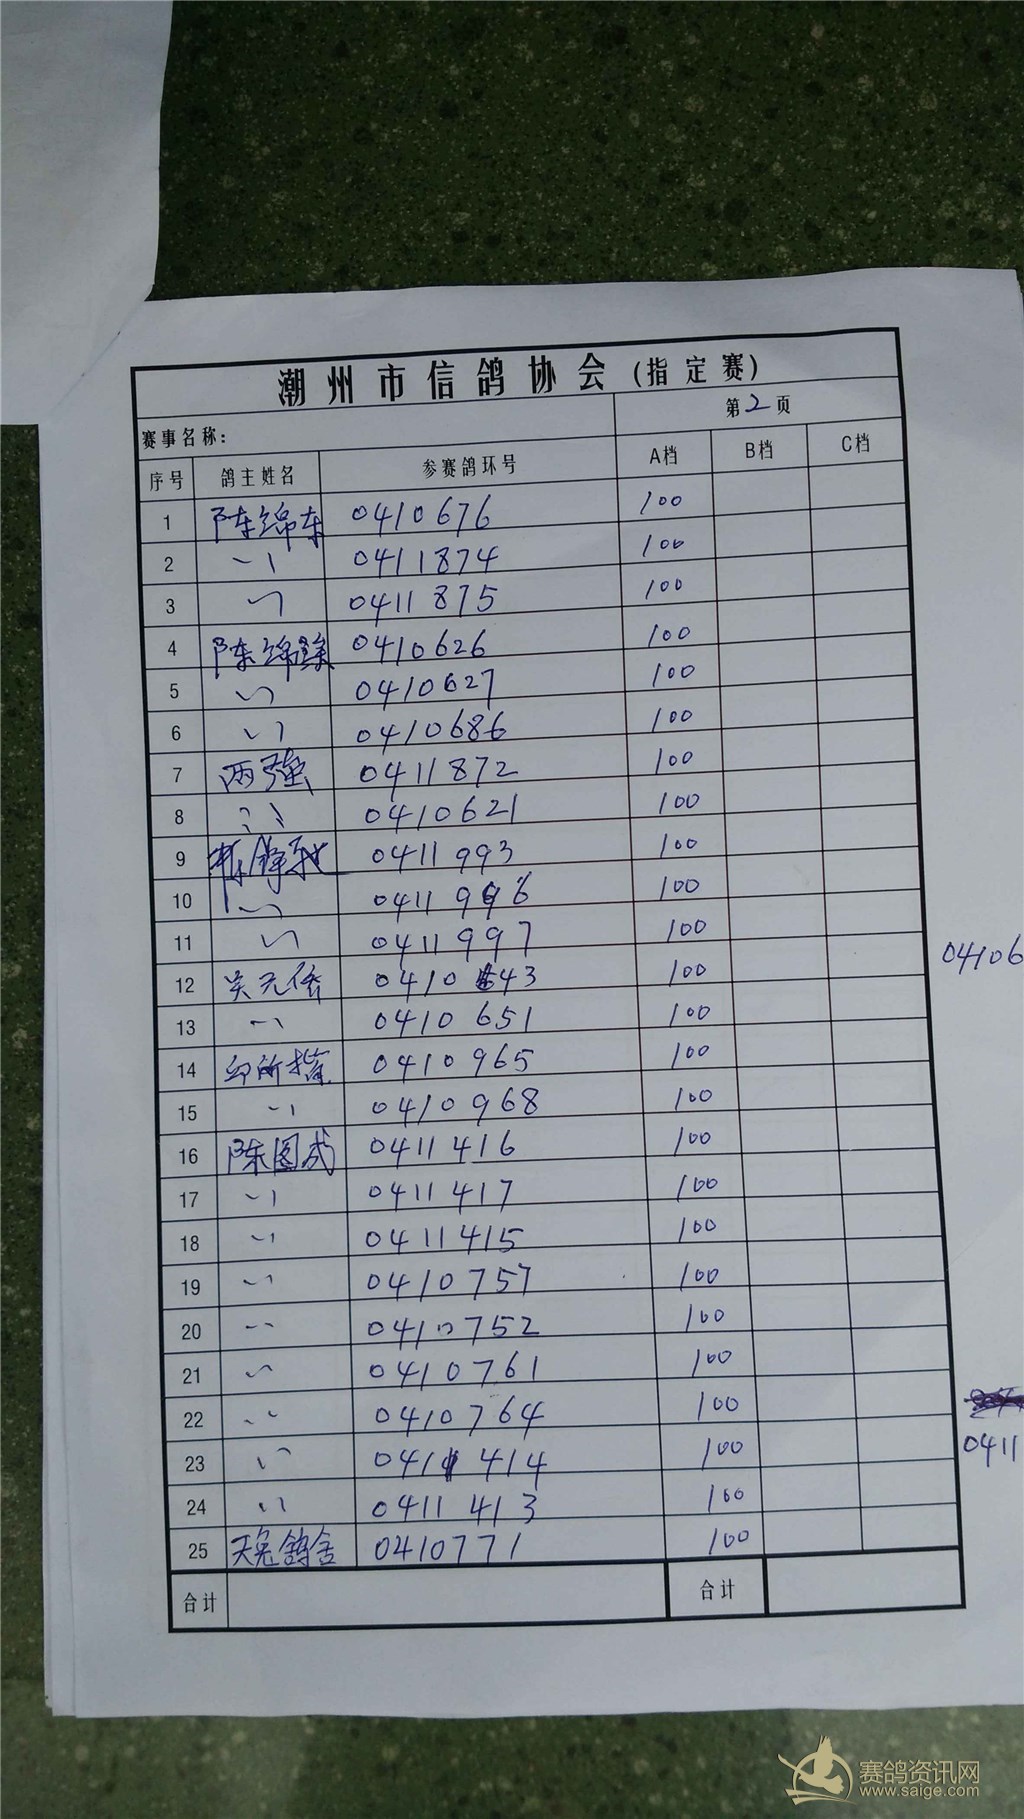 潮州市信鸽协会(指定赛)
赛事名称: 第2页
序号 鸽主姓名 参赛鸽环号 A档 B档 C档
1 陈绵东 0410676 100
2 〃 0411874 100
3 〃 0411875 100
4 陈绵 0410626 100
5 〃 0410627 100
6 〃 0410686 100
7 两强 0411872 100
8 〃 0410621 100
9 0411993 100
10 〃 0411996 100
11 〃 0411997 100
04106
12 吴元侨 0410643 100
13 〃 0410651 100
14 0410965 100
15 〃 0410968 100
16 陈图成 0411416 100
17 〃 0411417 100
18 〃 0411415 100
19 〃 0410757 100
20 〃 0410752 100
21 〃 0410761 100
22 〃 0410764 100
23 〃 0411414 100
0411
24 〃 0411413 100
25 天兔鸽舍 0410771 100
合计 合计
赛鸽资讯网
www.saige.com